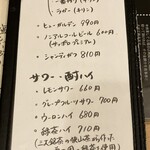 ラガー(キリン)
・ヒューガルデン 990円
・ノンアルコールビール 600円
(サッポロプレミアム)
・シャンディガフ 810円
サワー・酎ハイ
・レモンサワー 660円
・グレープフルーツサワー 700円
・ウーロンハイ 680円
・緑茶ハイ 710円